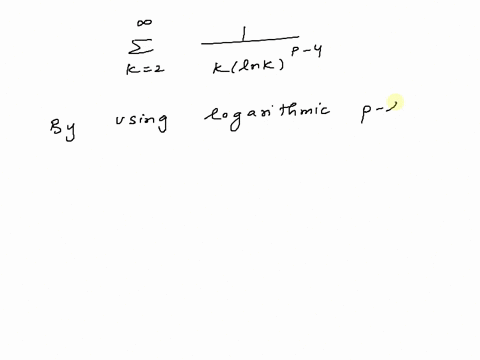 ∞
Σ 1 / k(lnk)^p-4
k=2
By using logarithmic p-